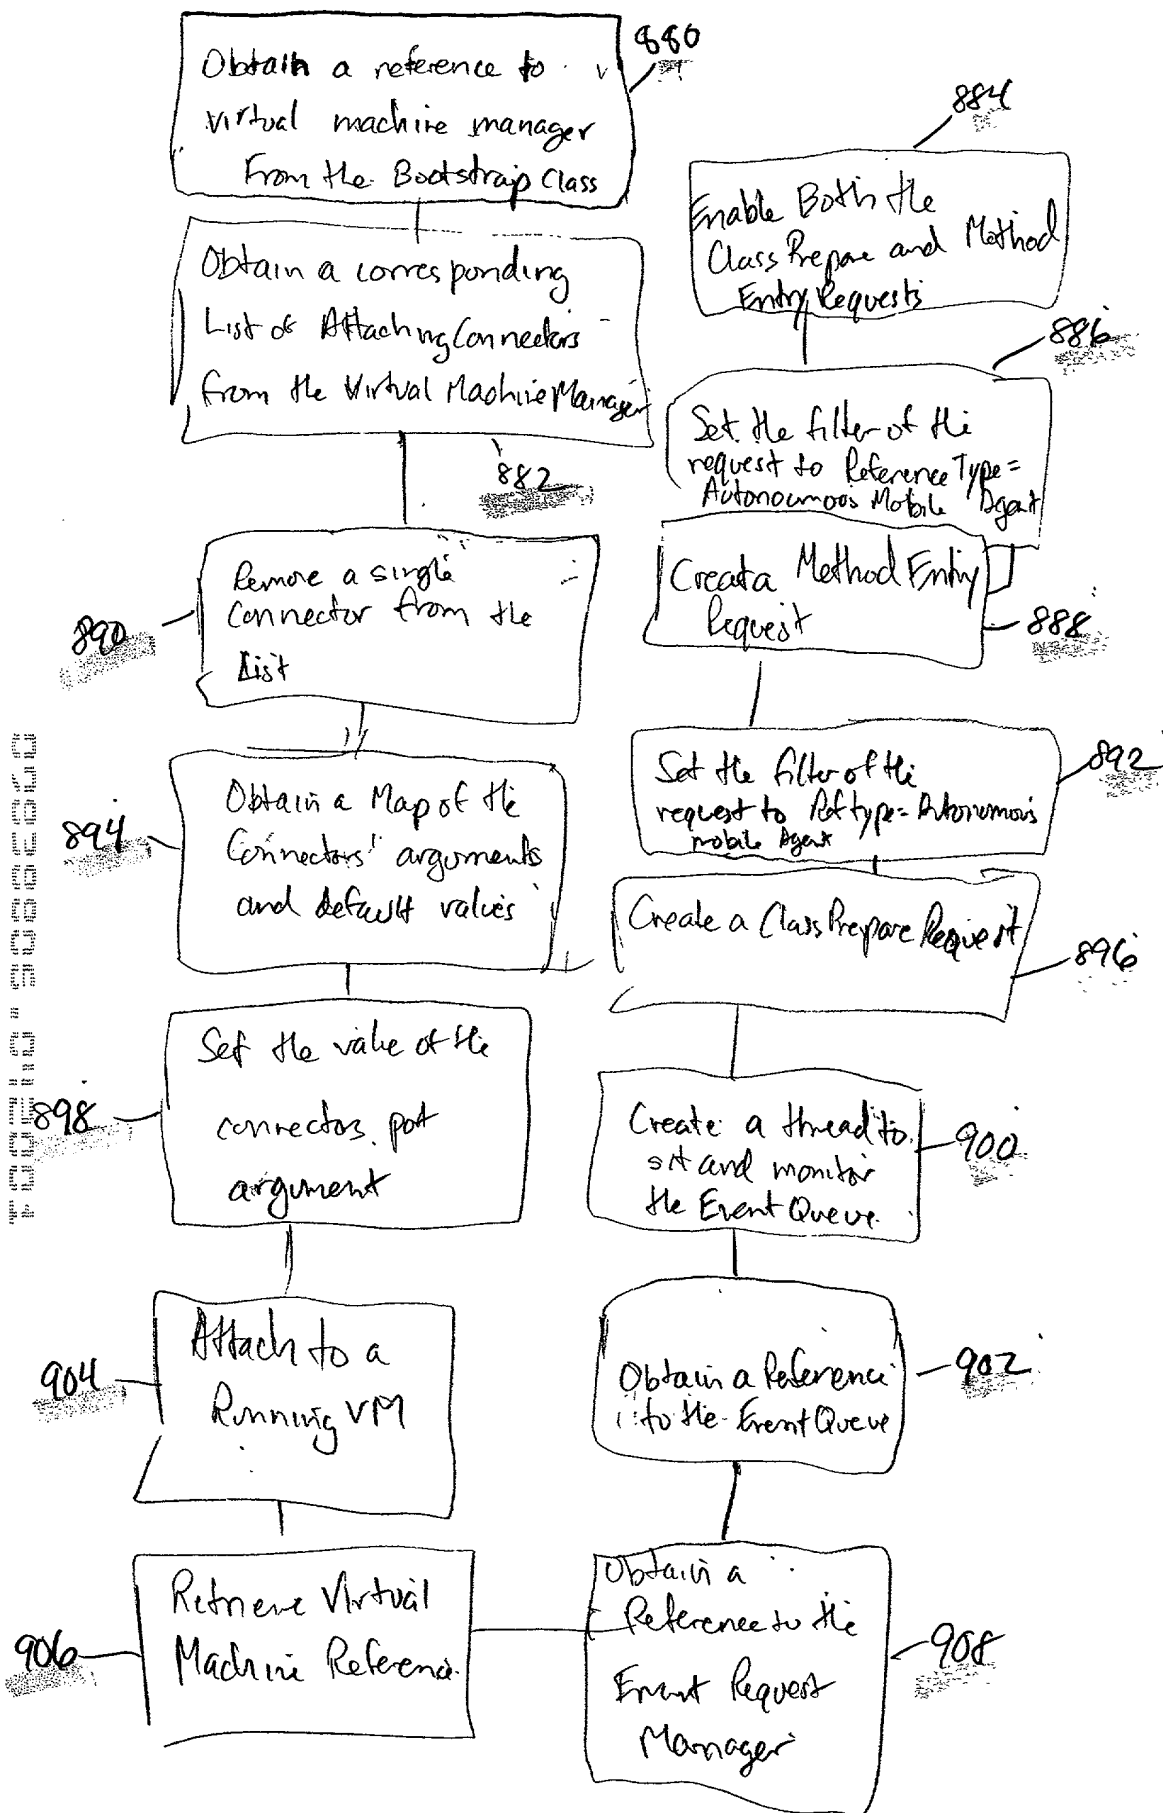 880
Obtain a reference to
virtual machine manager
From the Bootstrap Class
Obtain a corresponding
List of Attaching Connectors
from the Virtual Machine Manager
882
890
Remove a single
Connector from the
List
894
Obtain a Map of the
Connectors' arguments
and default values
898
Set the value of the
connectors port
argument
904
Attach to a
Running VM
906
Retrieve Virtual
Machine Reference
884
Enable Both the
Class Prepare and Method
Entry Requests
886
Set the filter of the
request to Reference Type=
Autonoumous Mobile Agent
Create a Method Entry
Request
888
892
Set the filter of the
request to Ref type= Autonomous
mobile Agent
Create a Class Prepare Request
896
Create a thread to
sit and monitor
the Event Queue
900
902
Obtain a Reference
to the Event Queue
Obtain a
Reference to the
Event Request
Manager
908